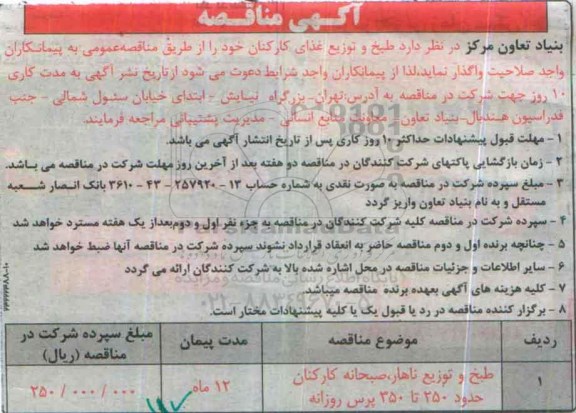 آگهی مناقصه
بنیاد تعاون مرکز در نظر دارد طبخ و توزیع غذای کارکنان خود را از طریق مناقصه‌عمومی به پیمانکاران
واجد صلاحیت واگذار نماید،لذا از پیمانکاران واجد شرایط دعوت می شود ازتاریخ نشر آگهی به مدت کاری
۱۰ روز جهت شرکت در مناقصه به آدرس:تهران- بزرگراه نیایش - ابتدای خیابان سئول شمالی - جنب
فدراسیون هندبال-بنیاد تعاون- معاونت منابع انسانی - مدیریت پشتیبانی مراجعه فرمایند.
۱ - مهلت قبول پیشنهادات حداکثر ۱۰ روز کاری پس از تاریخ انتشار آگهی می باشد.
۲ - زمان بازگشایی پاکتهای شرکت کنندگان در مناقصه دو هفته بعد از آخرین روز مهلت شرکت در مناقصه می باشد.
۳ - مبلغ سپرده شرکت در مناقصه به صورت نقدی به شماره حساب ۱۳ - ۲۵۷۹۲۰ - ۴۳ - ۳۶۱۰ بانک انصار شعبه
مستقل و به نام بنیاد تعاون واریز گردد
۴ - سپرده شرکت در مناقصه کلیه شرکت کنندگان در مناقصه به جزء نفر اول و دوم‌بعداز یک هفته مسترد خواهد شد
۵ - چنانچه برنده اول و دوم مناقصه حاضر به انعقاد قرارداد نشوند سپرده شرکت در مناقصه آنها ضبط خواهد شد
۶ - سایر اطلاعات و جزئیات مناقصه در محل اشاره شده بالا به شرکت کنندگان ارائه می گردد
۷ - کلیه هزینه های آگهی بعهده برنده مناقصه میباشد.
۸ - برگزار کننده مناقصه در رد یا قبول یک یا کلیه پیشنهادات مختار است.
ردیف موضوع مناقصه مدت پیمان مبلغ سپرده شرکت در
مناقصه (ریال)
۱ طبخ و توزیع ناهار،صبحانه کارکنان
حدود ۲۵۰ تا ۳۵۰ پرس روزانه ۱۲ ماه ۲۵۰/۰۰۰/۰۰۰